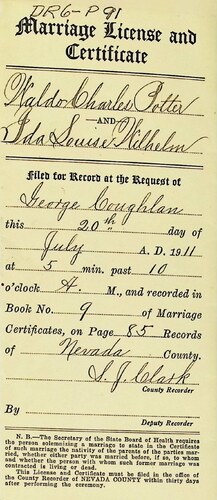 DR6-P91
Marriage License and
Certificate
Waldo Charles Potter
AND
Ida Louise Wilhelm
Filed for Record at the Request of
George Coughlan
this 20th day of
July A. D. 1911
at 5 min. past 10
o'clock A. M., and recorded in
Book No. 9 of Marriage
Certificates, on Page 85 Records
of Nevada County.
S. J. Clark
County Recorder
By
Deputy Recorder
N. B.—The Secretary of the State Board of Health requires the
person solemnizing a marriage to state in the Certificate
of such marriage the nativity of the parents of the parties mar-
ried, whether either party was married before, if so, to whom
and whether the person with whom such former marriage was
contracted is living or dead.
This License and Certificate must be filed in the office of
the County Recorder of NEVADA COUNTY within thirty days
after performing the ceremony.